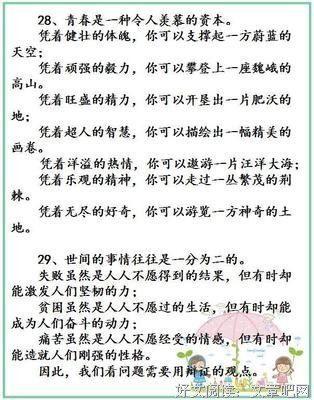 28、青春是一种令人羡慕的资本。
凭着健壮的体魄,你可以支撑起一方蔚蓝的
天空;
凭着顽强的毅力,你可以攀登上一座巍峨的
高山。
凭着旺盛的精力,你可以开垦出一片肥沃的
地;
凭着超人的智慧,你可以描绘出一幅精美的
画卷。
凭着洋溢的热情,你可以遨游一片汪洋大海;
凭着乐观的精神,你可以走过一丛繁茂的荆
棘。
凭着无尽的好奇,你可以游览一方神奇的土
地。
29、世间的事情往往是一分为二的。
失败虽然是人人不愿得到的结果,但有时却
能激发人们坚韧的力;
贫困虽然是人人不愿过的生活,但有时却能
成为人们奋斗的动力;
痛苦虽然是人人不愿经受的情感,但有时却
能造就人们刚强的性格。
因此,我们看问题需要用辩证的观点。